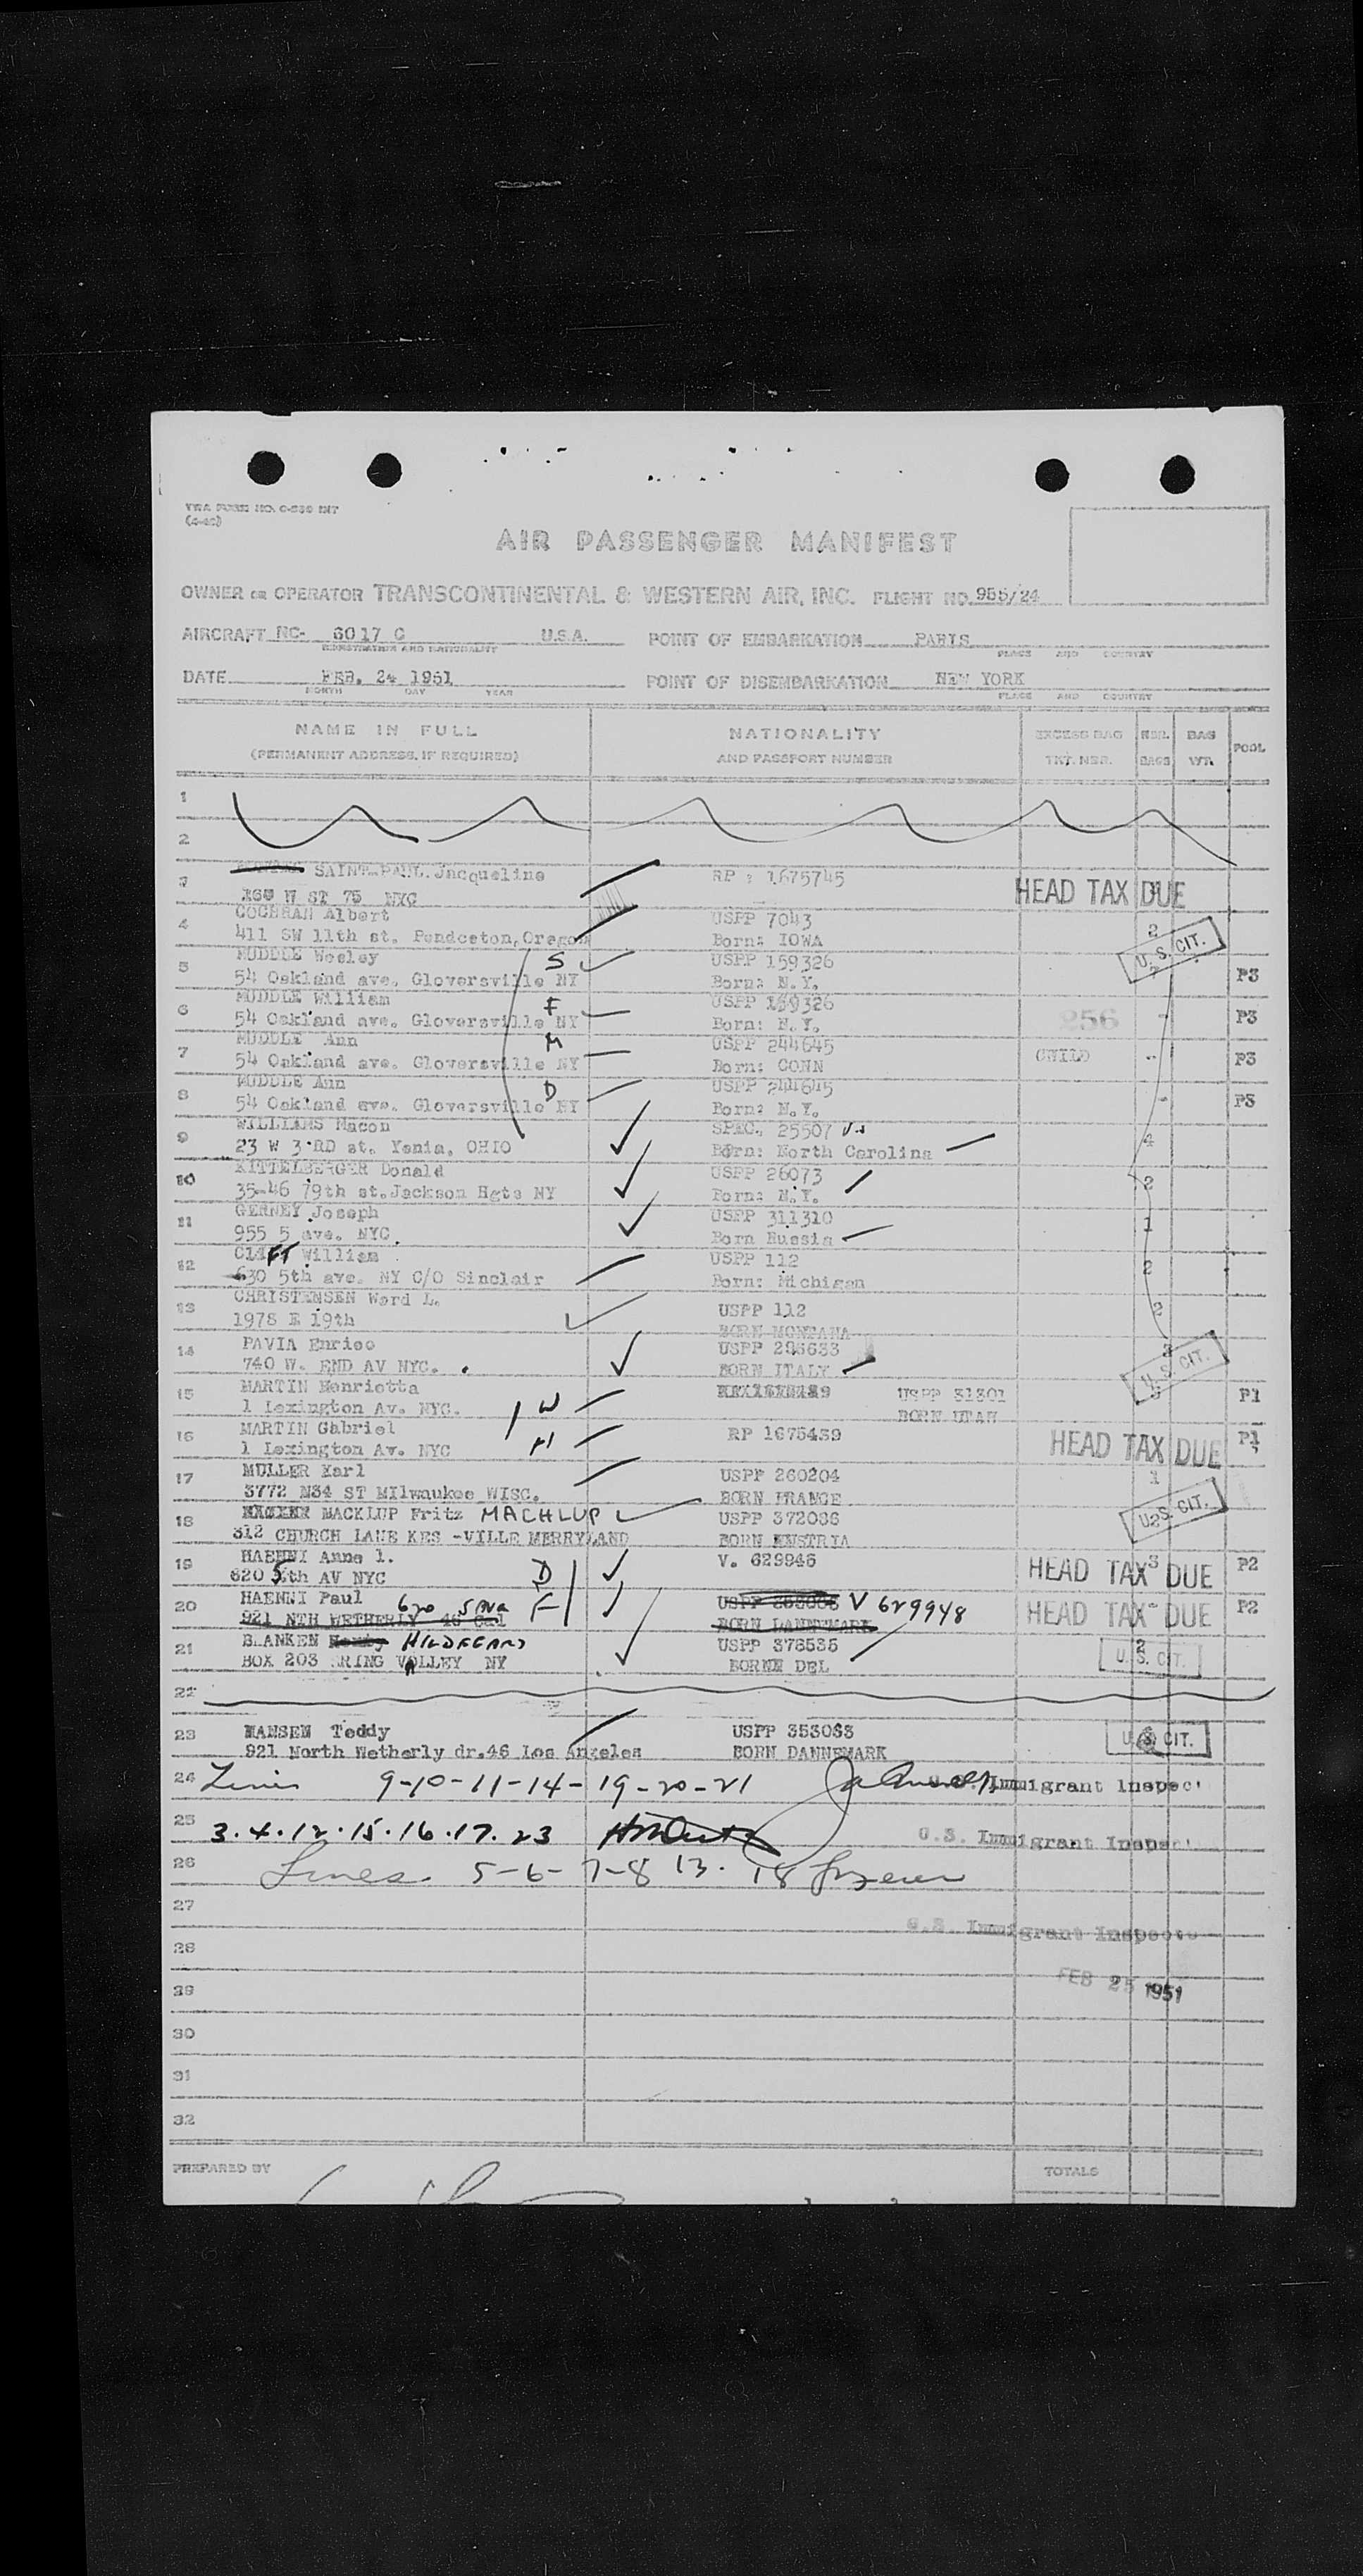 TWA FORM NO. C-830 INT
AIR PASSENGER MANIFEST
OWNER OR OPERATOR TRANSCONTINENTAL & WESTERN AIR, INC. FLIGHT NO. 955/24
AIRCRAFT NC- 6017 C U.S.A. POINT OF EMBARKATION PARIS
REGISTRATION AND NATIONALITY PLACE AND COUNTRY
DATE FEB. 24 1951 POINT OF DISEMBARKATION NEW YORK
MONTH DAY YEAR PLACE AND COUNTRY
NAME IN FULL NATIONALITY EXCESS BAG NBR. BAG POOL
(PERMANENT ADDRESS, IF REQUIRED) AND PASSPORT NUMBER TKT. NBR. BAGS WT.
1
2
3 SAINT-PAUL Jacqueline RP : 1675745
W ST 75 NYC HEAD TAX DUE
4 COCHRAN Albert USPP 7043 2
411 SW 11th st. Pendceton, Oregon Born: IOWA U.S. CIT.
5 MUDDLE Wesley S USPP 159326
54 Oakland ave. Gloversville NY Born: N.Y. P3
6 MUDDLE William F USPP 159326 256
54 Oakland ave. Gloversville NY Born: N.Y. - P3
7 MUDDLE Ann M USPP 244645 CHILD
54 Oakland ave. Gloversville NY Born: CONN - P3
8 MUDDLE Ann D USPP 244645
54 Oakland ave. Gloversville NY Born: N.Y. - P3
9 WILLIAMS Macon SPEC. 25507
23 W 3 RD st. Yenia, OHIO Born: North Carolina 4
10 KITTELBERGER Donald USPP 26073
35-46 79th st. Jackson Hgts NY Born: N.Y. 2
11 GERNEY Joseph USPP 311310
955 5 ave. NYC. Born Russia 1
12 ClIFT William USPP 112
630 5th ave. NY C/O Sinclair Born: Michigan 2
13 CHRISTENSEN Ward L. USPP 112 2
1978 E 19th BORN MONTANA
14 PAVIA Enrico USPP 296633
740 W. END AV NYC. BORN ITALY U.S. CIT.
15 MARTIN Henrietta USPP 31301 P1
1 Lexington Av. NYC. W BORN UTAH
16 MARTIN Gabriel RP 1675439 HEAD TAX DUE P1
1 Lexington Av. NYC H
17 MULLER Karl USPP 260204 1
3772 N34 ST MIlwaukee WISC. BORN FRANCE
18 MACKLUP Fritz MACHLUP USPP 372086 2 U.S. CIT.
312 CHURCH LANE KES -VILLE MERRYLAND BORN ENSTRIA
19 HAENNI Anne l. V. 629946 HEAD TAX DUE 3 P2
620 5th AV NYC D
20 HAENNI Paul 620 5 Ave F V 629948 HEAD TAX DUE - P2
921 NTH WETHERLY 46 Cal BORN DANNEMARK
21 BLANKEN HILDEGARD USPP 378535 2
BOX 203 SRING VALLEY NY BORNE DEL U.S. CIT.
22
23 HANSEN Teddy USPP 353083 U.S. CIT.
921 North Wetherly dr.46 Los Angeles BORN DANNEMARK
24 Lines 9-10-11-14-19-20-21 Immigrant Inspec
25 3.4.12.15.16.17.23 U.S. Immigrant Inspec
26 Lines 5-6-7-8 13. 18
27 U.S. Immigrant Inspecto
28
29 FEB 25 1951
30
31
32
PREPARED BY TOTALS